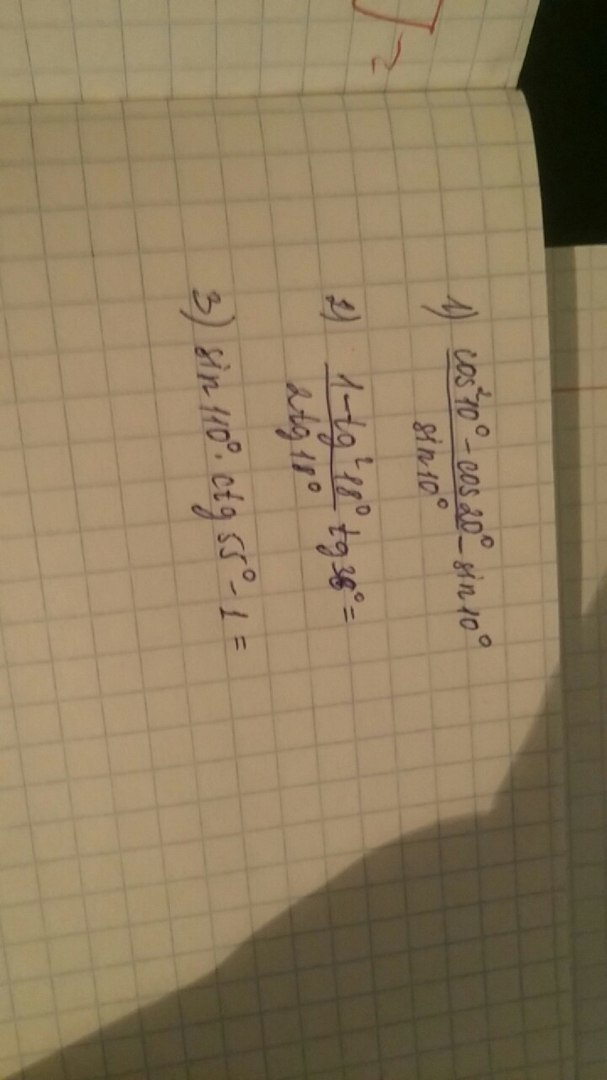 1) cos²10° - cos20° / sin10° - sin10°
2) 1 - tg²18° / 2tg18° tg36° =
3) sin110° · ctg55° - 1 =